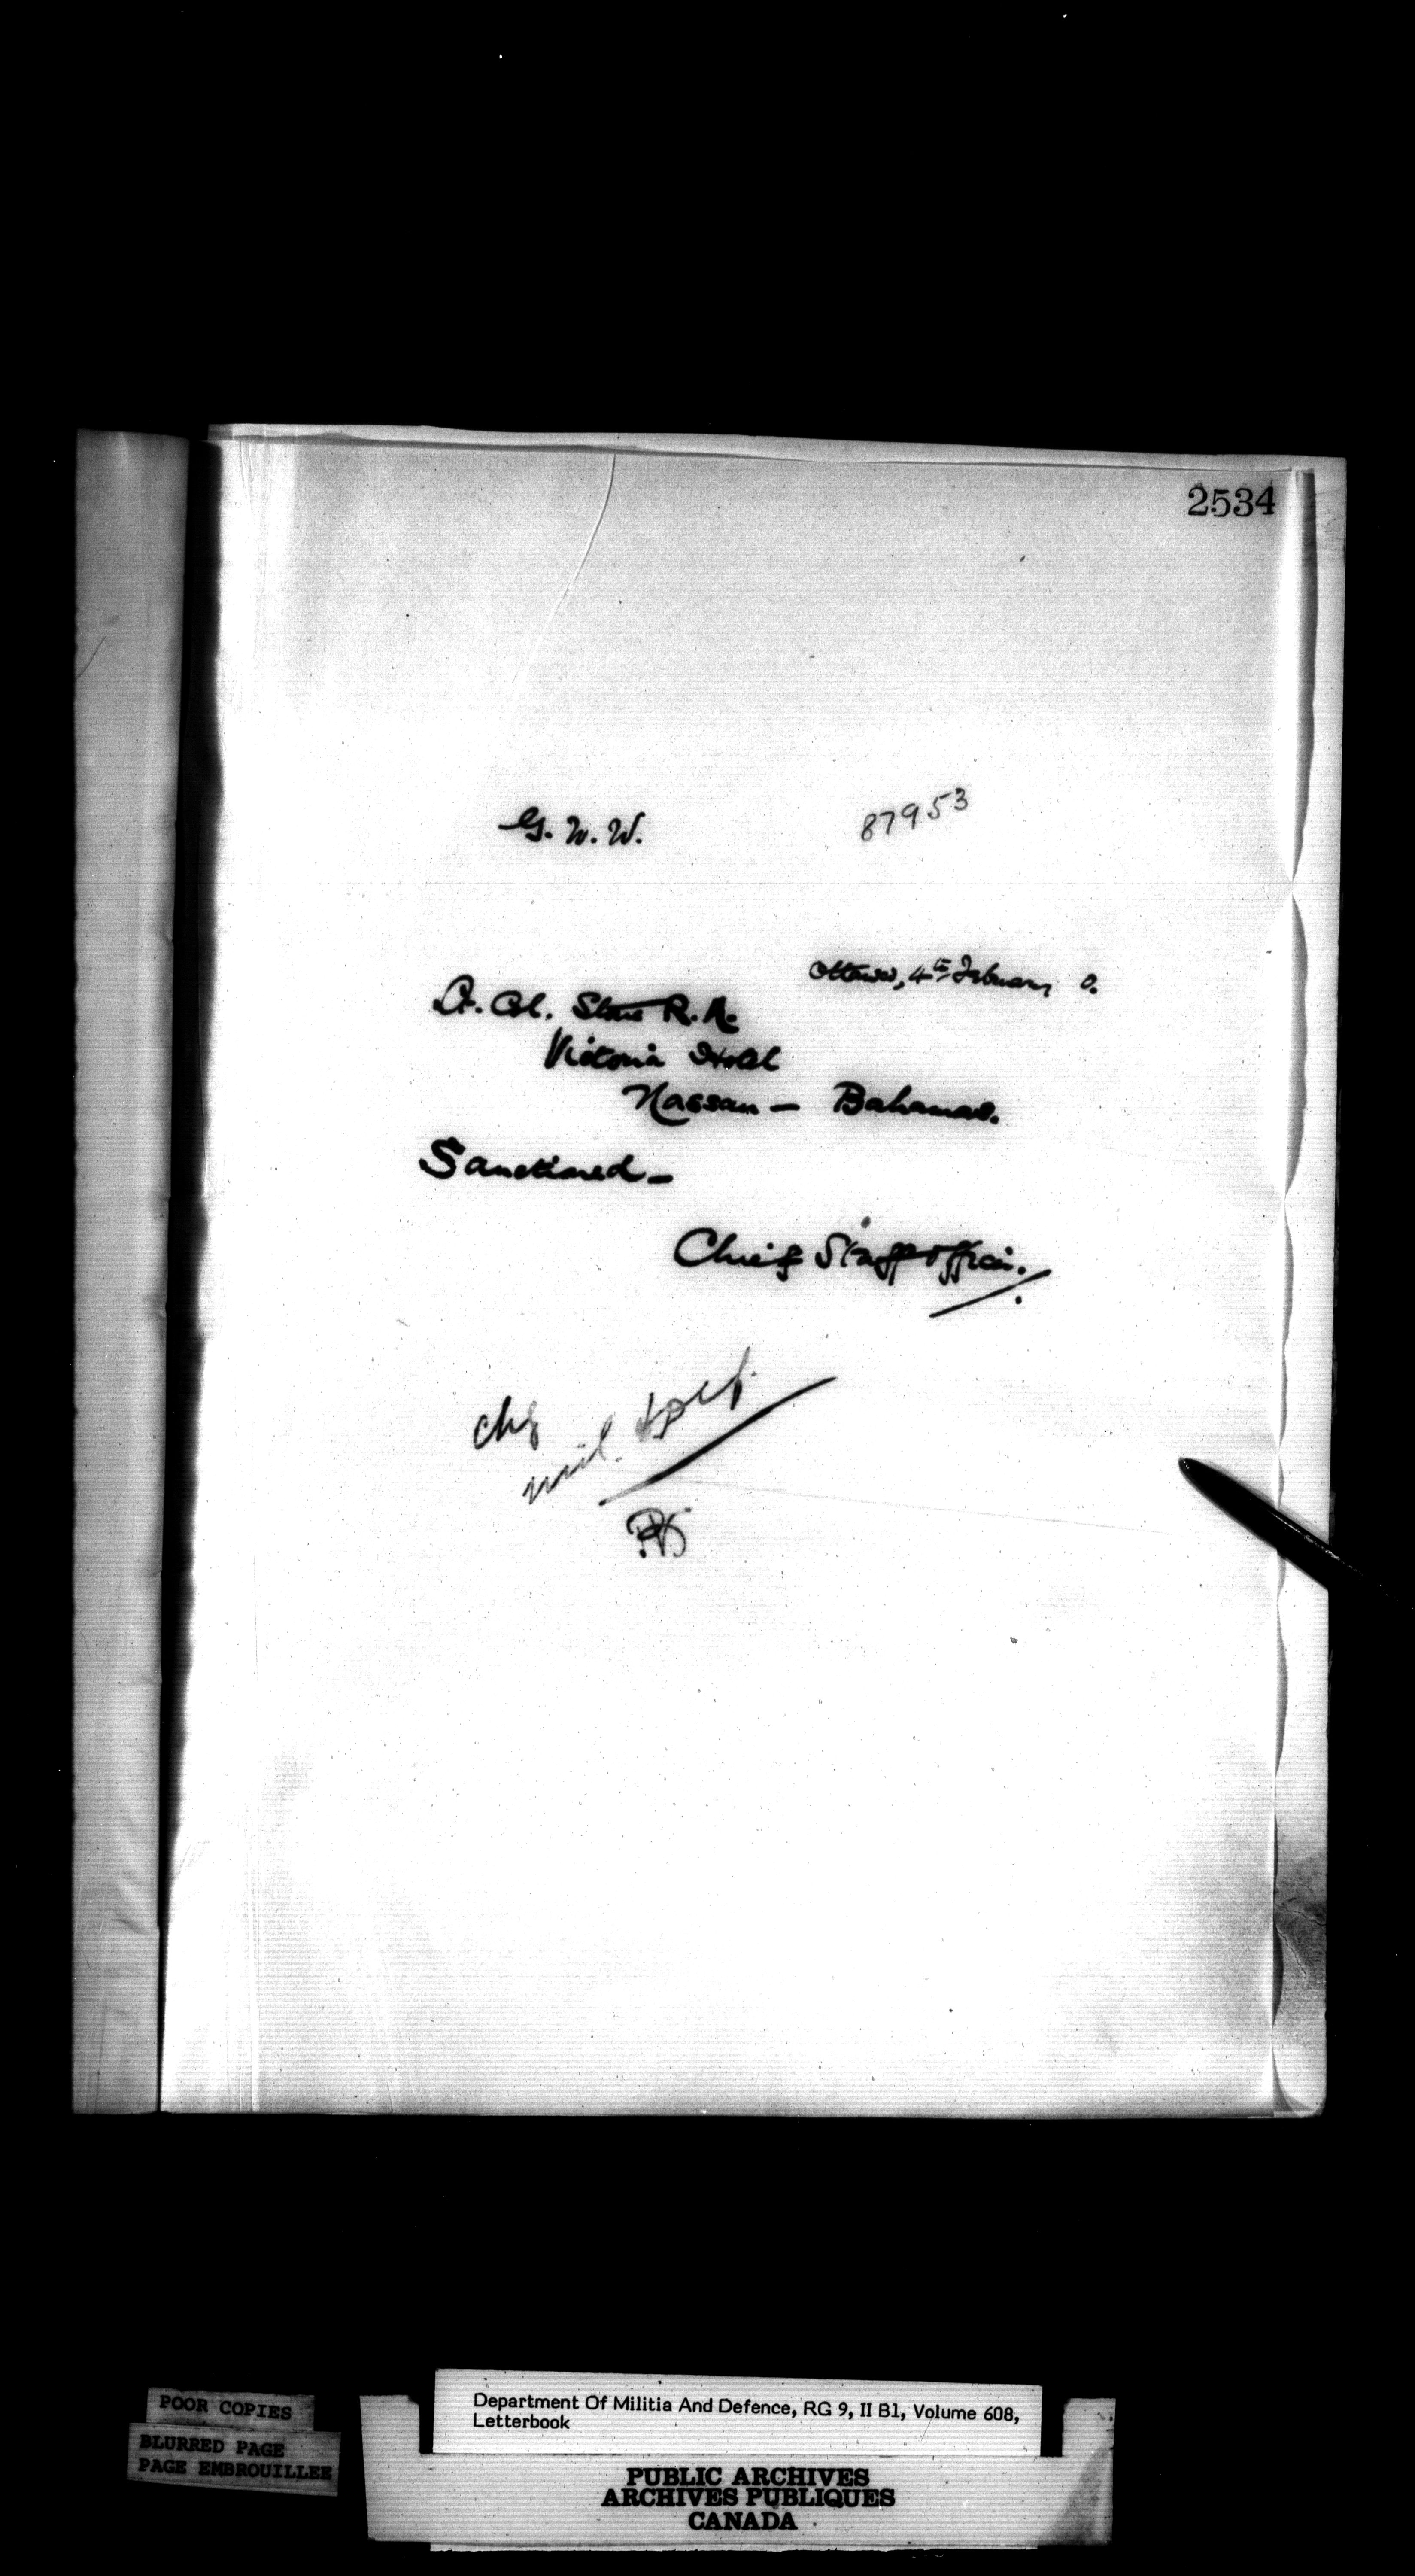 2534
G. N. W.
87953
Ottawa, 4th February 0.
Lt. Col. Stone R.A.
Victoria Hotel
Nassau — Bahamas.
Sanctioned —
Chief Staff Officer.
Chg
mil. Dept.
POOR COPIES
BLURRED PAGE
PAGE EMBROUILLEE
Department Of Militia And Defence, RG 9, II B1, Volume 608,
Letterbook
PUBLIC ARCHIVES
ARCHIVES PUBLIQUES
CANADA